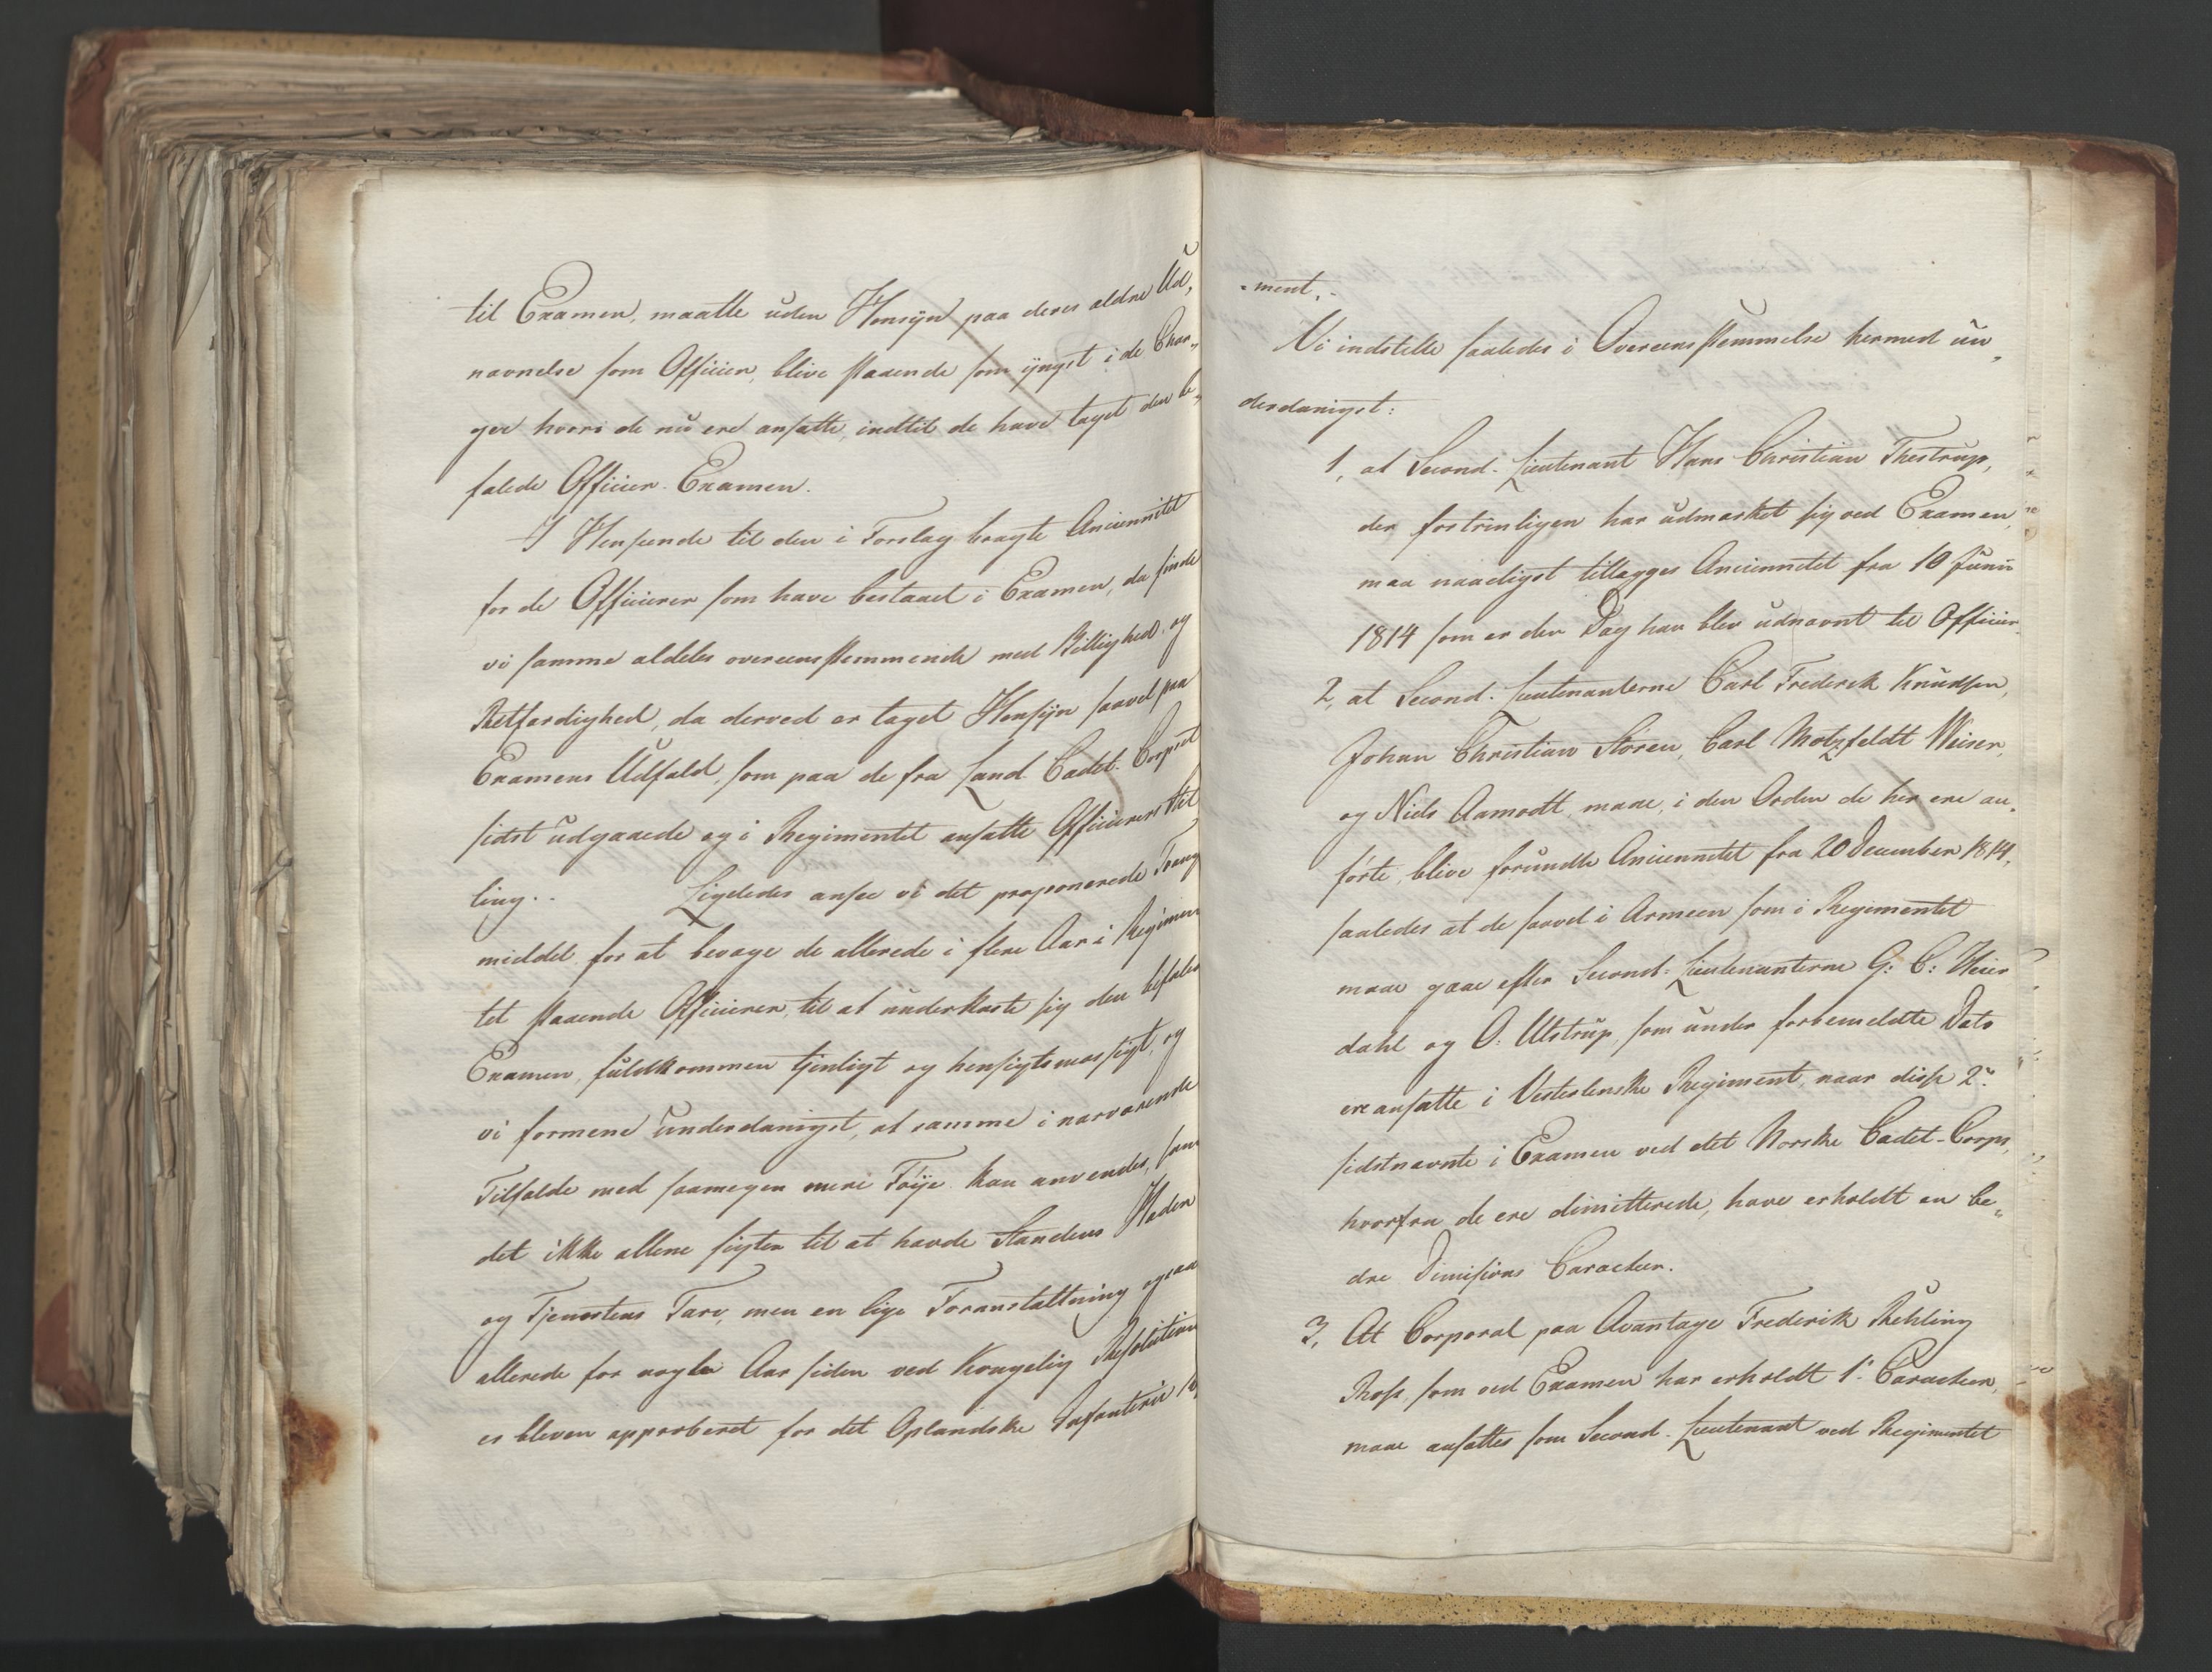 til Examen, maatte uden Hensyn paa deres ældre Ud,
nævnelse som Officier, blive staaende som yngst i de Char„
ger hvori de nu ere ansatte, indtil de have taget den be„
falede Officier-Examen.
I Henseende til den i Forslag bragte Anciennitet
for de Officierer som have bestaaet i Examen, da finde
vi samme aldeles overeensstemmende med Billighed og
Retfærdighed, da derved er taget Hensyn saavel paa
Examens Udfald, som paa de fra Land Cadet-Corpset
sidst udgaaede og i Regimentet ansatte Officierers Stil
ling.. Ligeledes ansee vi det proponerede Tvang
middel for at bevæge de allerede i flere Aar i Regimen
tet staaende Officierer, til at underkaste sig den befalede
Examen, fuldkommen tjenligt og hensigtsmæssigt, og
vi formene underdanigst, at samme i nærværende
Tilfælde med saamegen mere Føije kan anvendes, som
det ikke allene sigter til at hævde Standens Hæder
og Tjenestens Tarv, men en lige Foranstaltning ogsaa
allerede for nogle Aar siden ved Kongelig Resolution
er bleven approberet for det Oplandske Infanterie Re„
„ment.-
Vi indstille saaledes i Overeensstemmelse hermed un„
derdanigst:
1, at Second-Lieutenant Hans Christian Thestrup,
der fortrinligen har udmærket sig ved Examen,
maa naadigst tillægges Anciennitet fra 10 Junii
1814 som er den Dag han blev udnævnt til Officier.
2, at Second-Lieutenanterne Carl Frederik Knudsen,
Johan Christian Støren, Carl Motzfeldt Meiser,
og Niels Aamodt, maae, i den Orden de her ere an„
førte, blive forundte Anciennitet fra 20 December 1814,
saaledes at de saavel i Armeen som i Regimentet
maae gaae efter Second-Lieutenanterne G: C: Heier
dahl og O. Ulstrup, som under forbemeldte Dato
ere ansatte i Vesterlenske Regiment, naar disse 2de
sidstnævnte i Examen ved det Norske Cadet-Corps,
hvorfra de ere dimitterede, have erholdt en be„
dre Dimissions Caracteer.
3, At Corporal paa Avantage Frederik Rehling
Ross, som ved Examen har erholdt 1ste Caracteer,
maae ansættes som Second-Lieutenant ved Regimentet